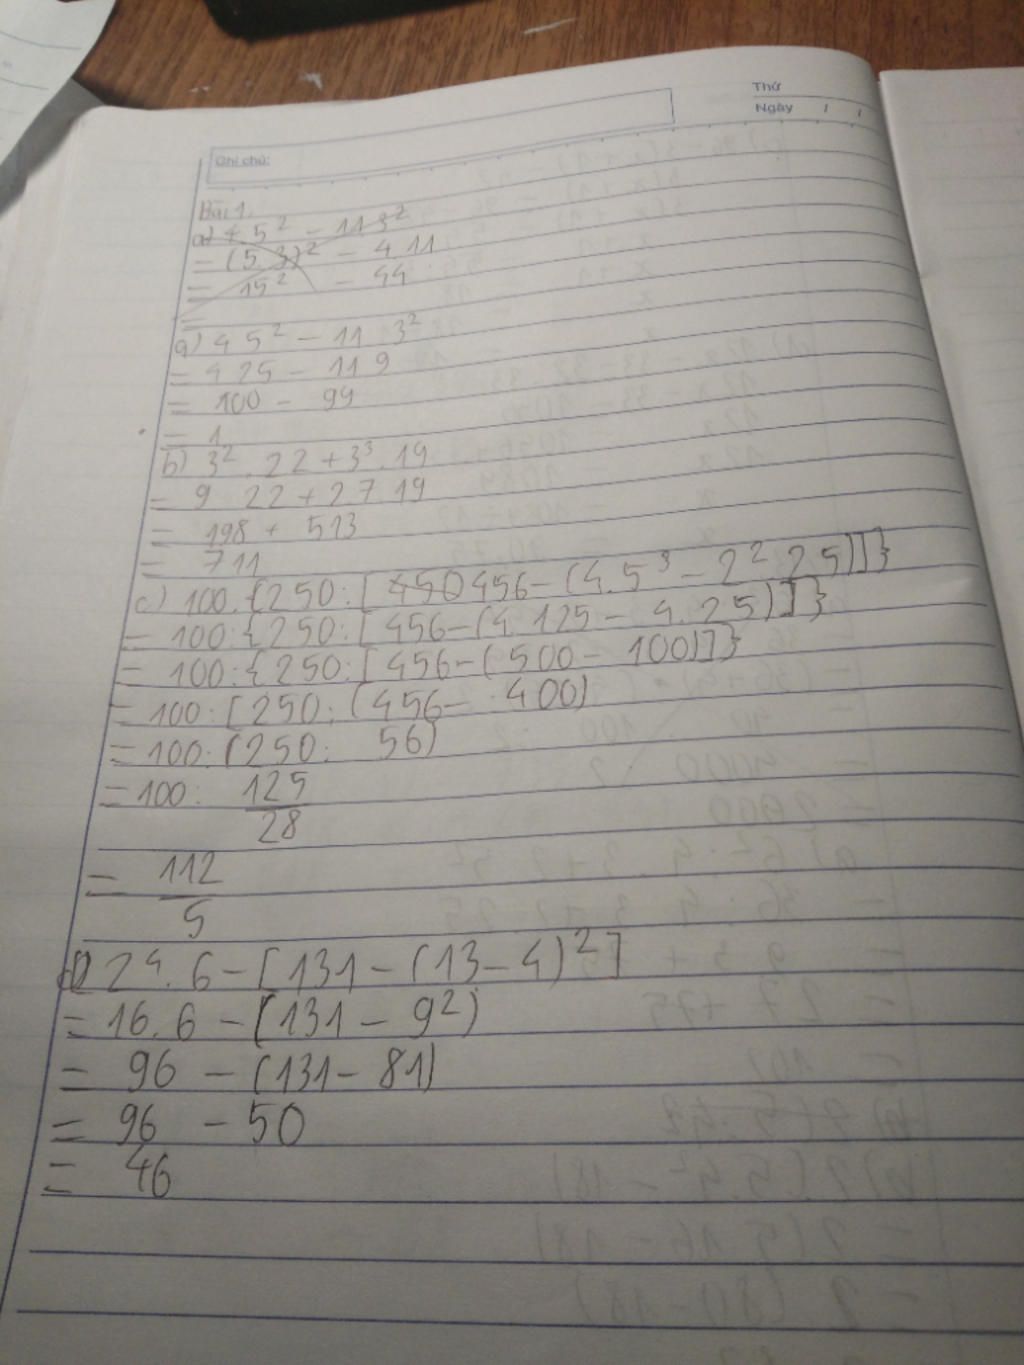 Thứ
Ngày / /
Ghi chú:
Bài 1.
a) 4 5² - 11 3²
= (5.3)² - 4.11
= 15² - 44
=
a) 4 5² - 11 . 3²
= 4 25 - 11 9
= 100 - 99
= 1
b) 3² . 22 + 3³ . 19
= 9 22 + 27 19
= 198 + 513
= 711
c) 100:{250:[450 456-(4.5³ - 2² 25)]]}
= 100:{250:[456-(4.125 - 4.25)]}
= 100:{250:[456-(500 - 100)]}
= 100:[250:(456- 400)
= 100:(250: 56)
= 100: 125/28
= 112/5
d) 2⁴.6 - [131 - (13-4)²]
= 16.6 - (131 - 9²)
= 96 - (131 - 81)
= 96 - 50
= 46